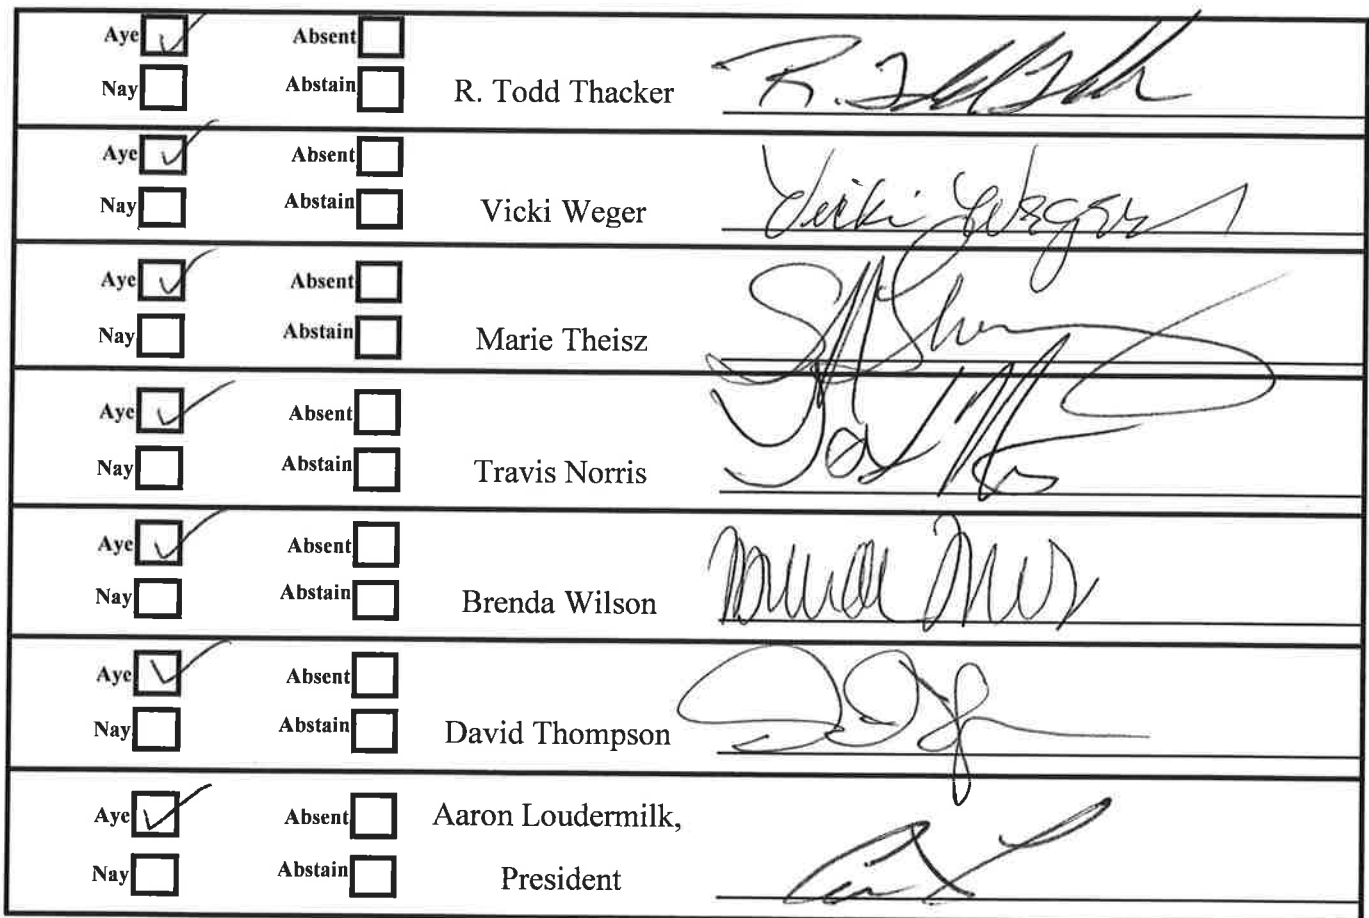 Aye Absent
Nay Abstain R. Todd Thacker R. Todd Thacker
Aye Absent
Nay Abstain Vicki Weger Vicki Weger
Aye Absent
Nay Abstain Marie Theisz
Aye Absent
Nay Abstain Travis Norris
Aye Absent
Nay Abstain Brenda Wilson
Aye Absent
Nay Abstain David Thompson
Aye Absent Aaron Loudermilk,
Nay Abstain President